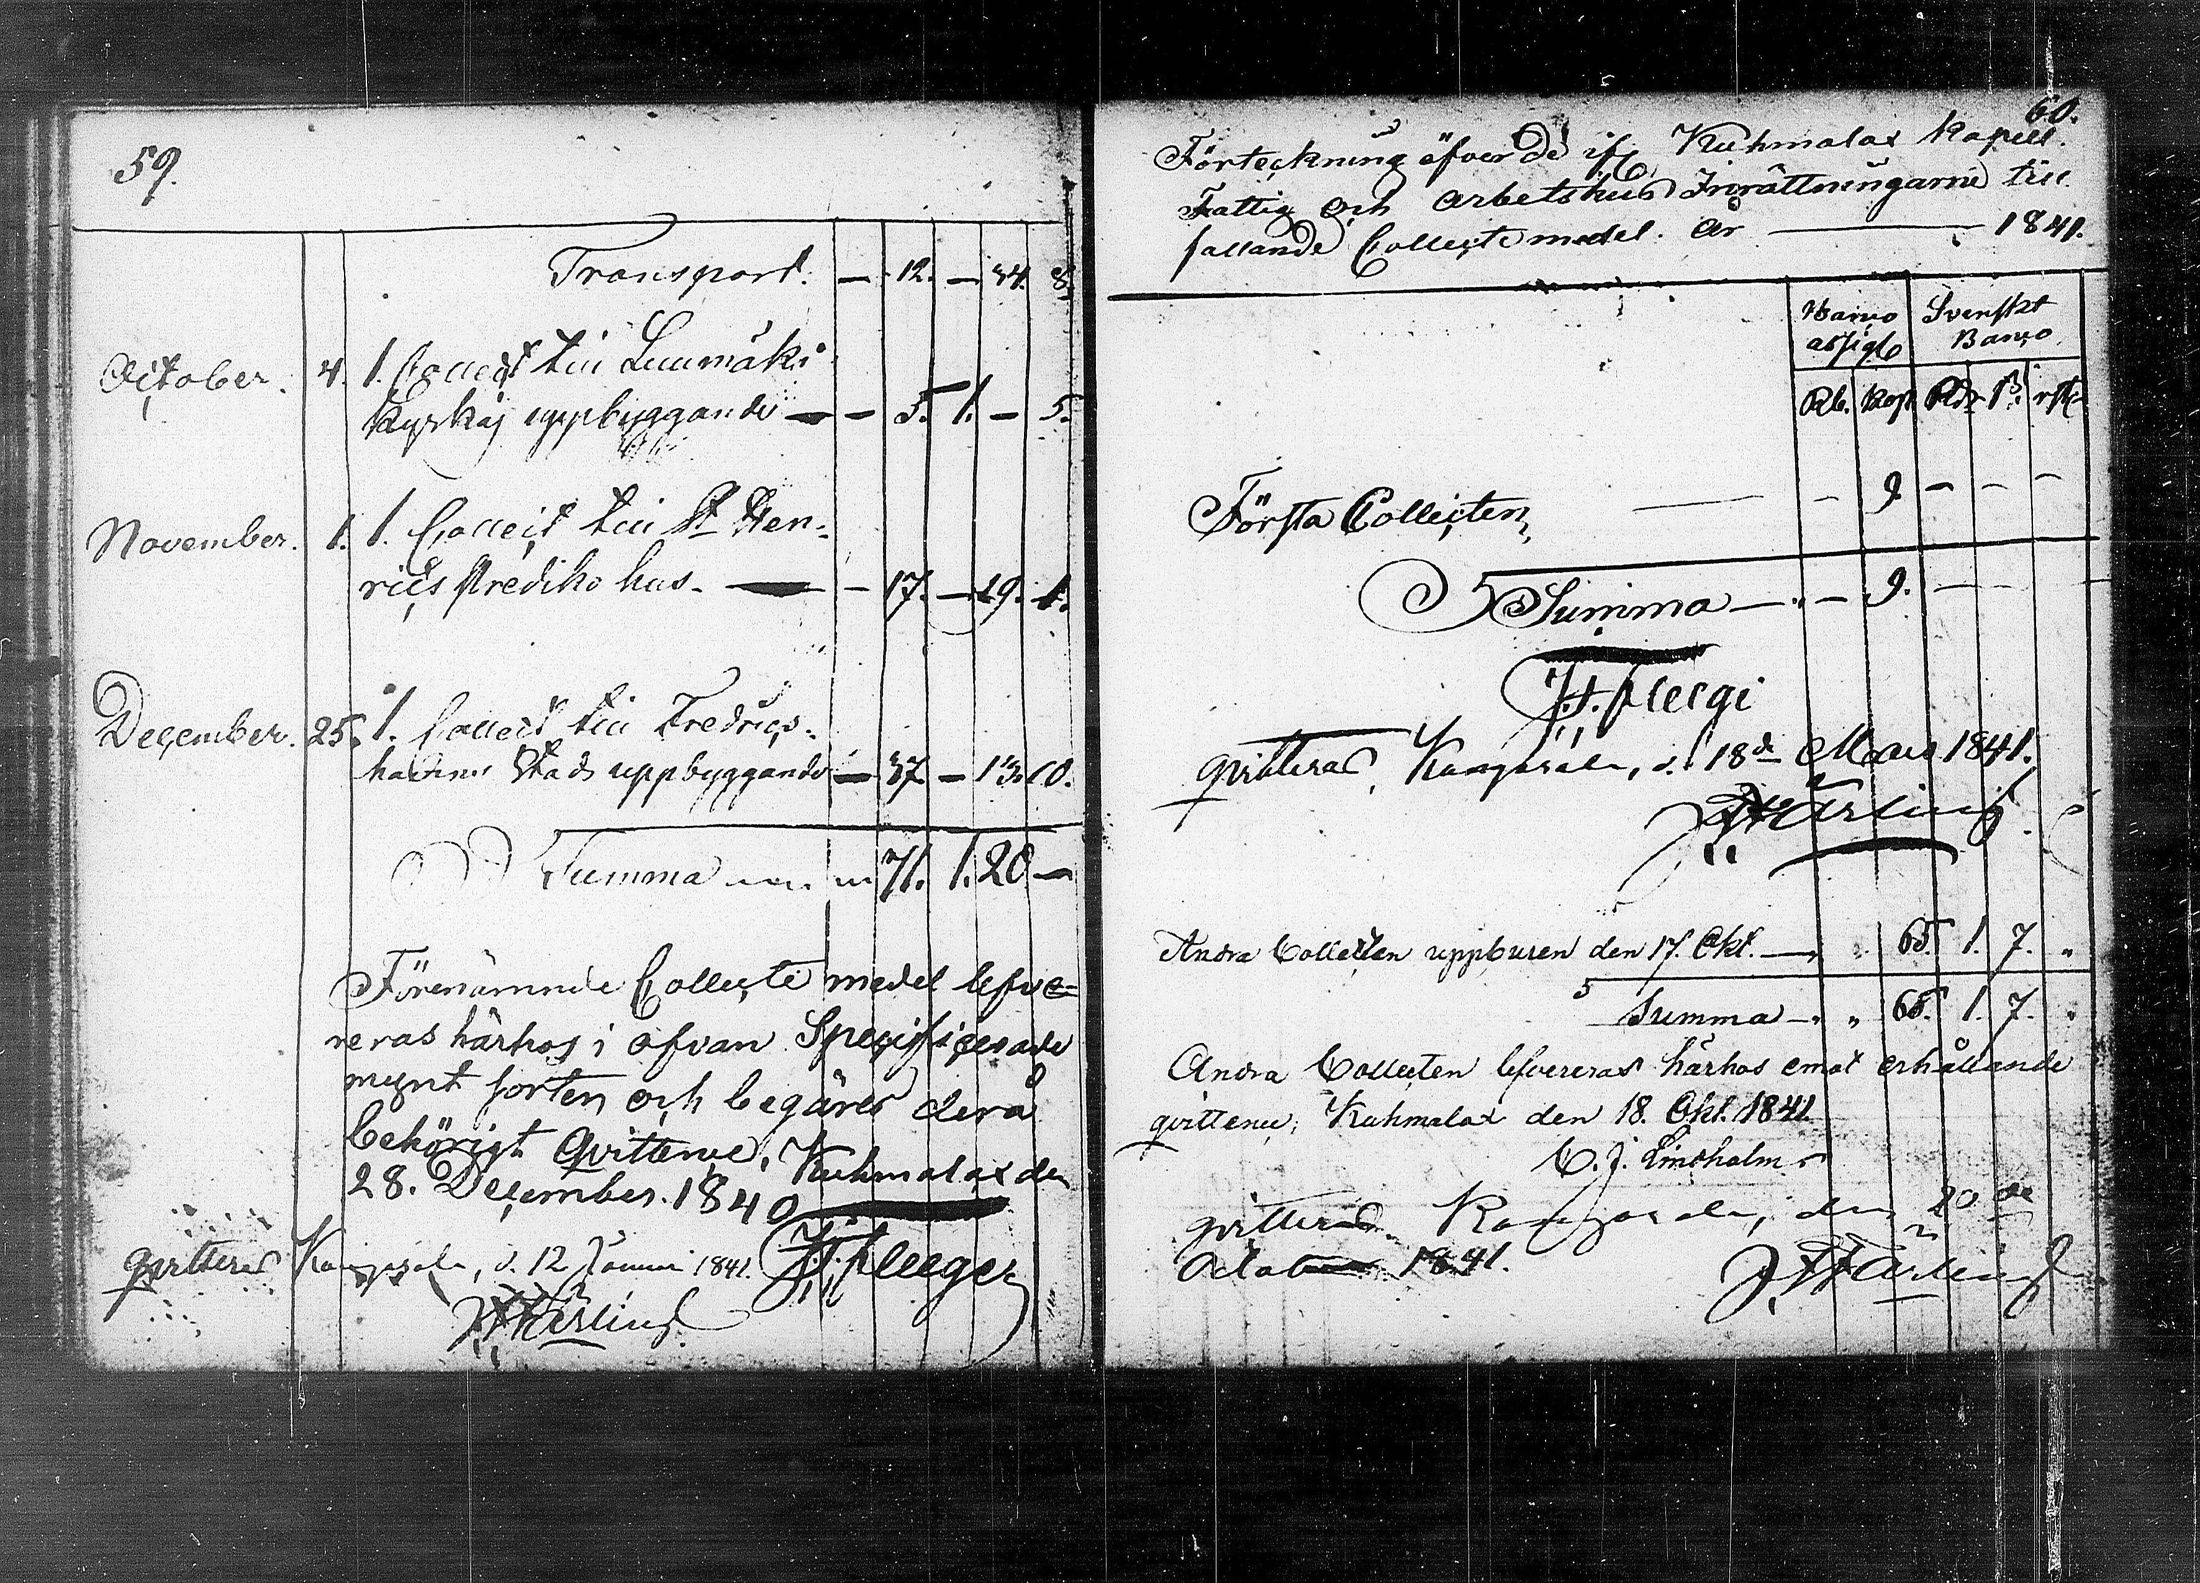 59.
Transport. — 12. — 34. 8.
October. 4. 1. Collect till Luumäki
kyrkas uppbyggande — — 5. 1. — 5.
November. 1. 1. Collect till St Hen-
rics Prediko hus. — — 17. — 19. 1.
December. 25. 1. Collect till Fredrics-
hamns Stads uppbyggande — 37 — 13. 10.
Summa 71. 1. 20 —
Förenämnde Collecte medel lefve-
reras härhos i ofvan Specificerade
mynt sorter och begäres derå
behörigt Qvittence. Kuhmalax den
28. December. 1840
qvitteras Kangasala, d. 12 Januari 1841.
60.
Förteckning öfver de ifr Kuhmalax Kapell.
Fattig och Arbetshus Inrättningarne till
fallande Collecte medel. År — 1841.
Banco Svenskt
assigt Banco
Rb. Kop. Rdr ß. rst.
Första Collecten, — — 9 — — —
Summa — — 9. — — —
qvitteras, Kangasala, d. 18de Mars 1841.
Andra Collecten uppburen den 17. Okt. — " 65. 1. 7. "
Summa — " 65. 1. 7. "
Andra Collecten lefvereras härhos emot erhållande
qvittence; Kuhmalax den 18. Okt. 1841
C. J. Lindholm
qvitteras. Kangasala, den 20de
October 1841.